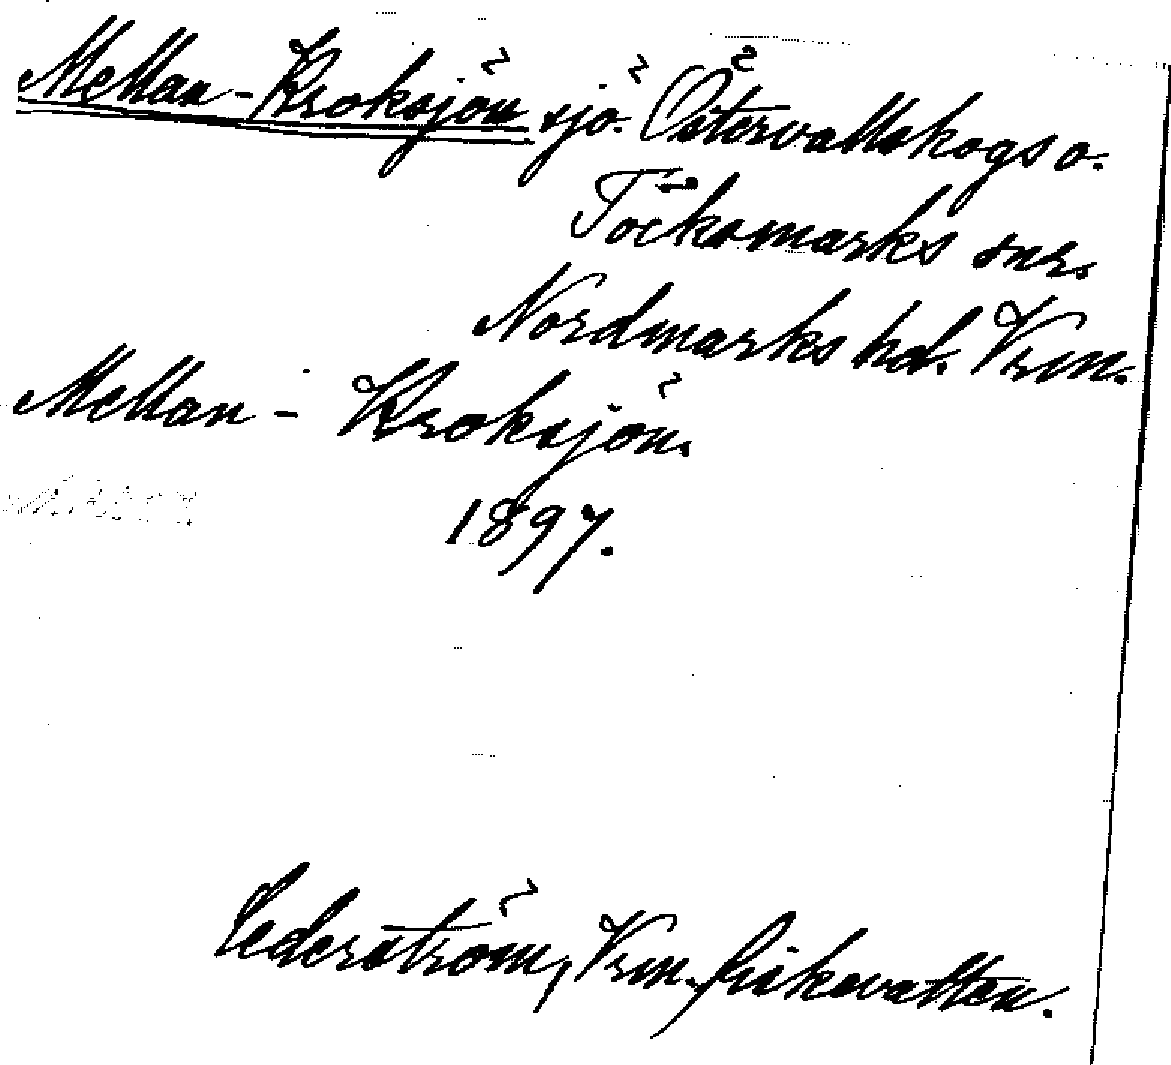 Mellan-Kroksjön sjö. Östervallskogs o.
Töcksmarks snr.
Nordmarks hd. Vrm.
Mellan - Kroksjön.
1897.
Cederström, Vrm. fiskevatten.